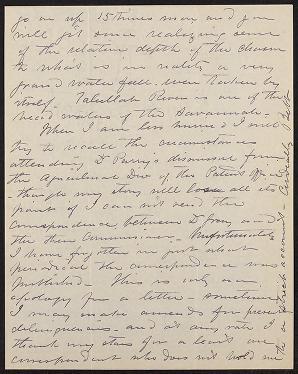 go on up 15 times more and you
will get some realizing sense
of the relative depth of the chasm
to what is in reality a very
grand water fall even taken by
itself. Tallullah River is one of the
head waters of the Savannah.
When I am less hurried I will
try to recall the circumstances
attending Dr Parry's dismissal from
the Agricultural Div of the Patent Office
- though my story will lose all its
point if I can not send the
correspondence between Dr Gray and
the then Commissioner. Unfortunately
I have forgotten in just what
periodical the correspondence was
published. This is only an
apology for a letter - sometime
I may make amends for present
delinquencies - and at any rate I
thank my stars for a
correspondent who does not hold me
to a strict account. Cordially